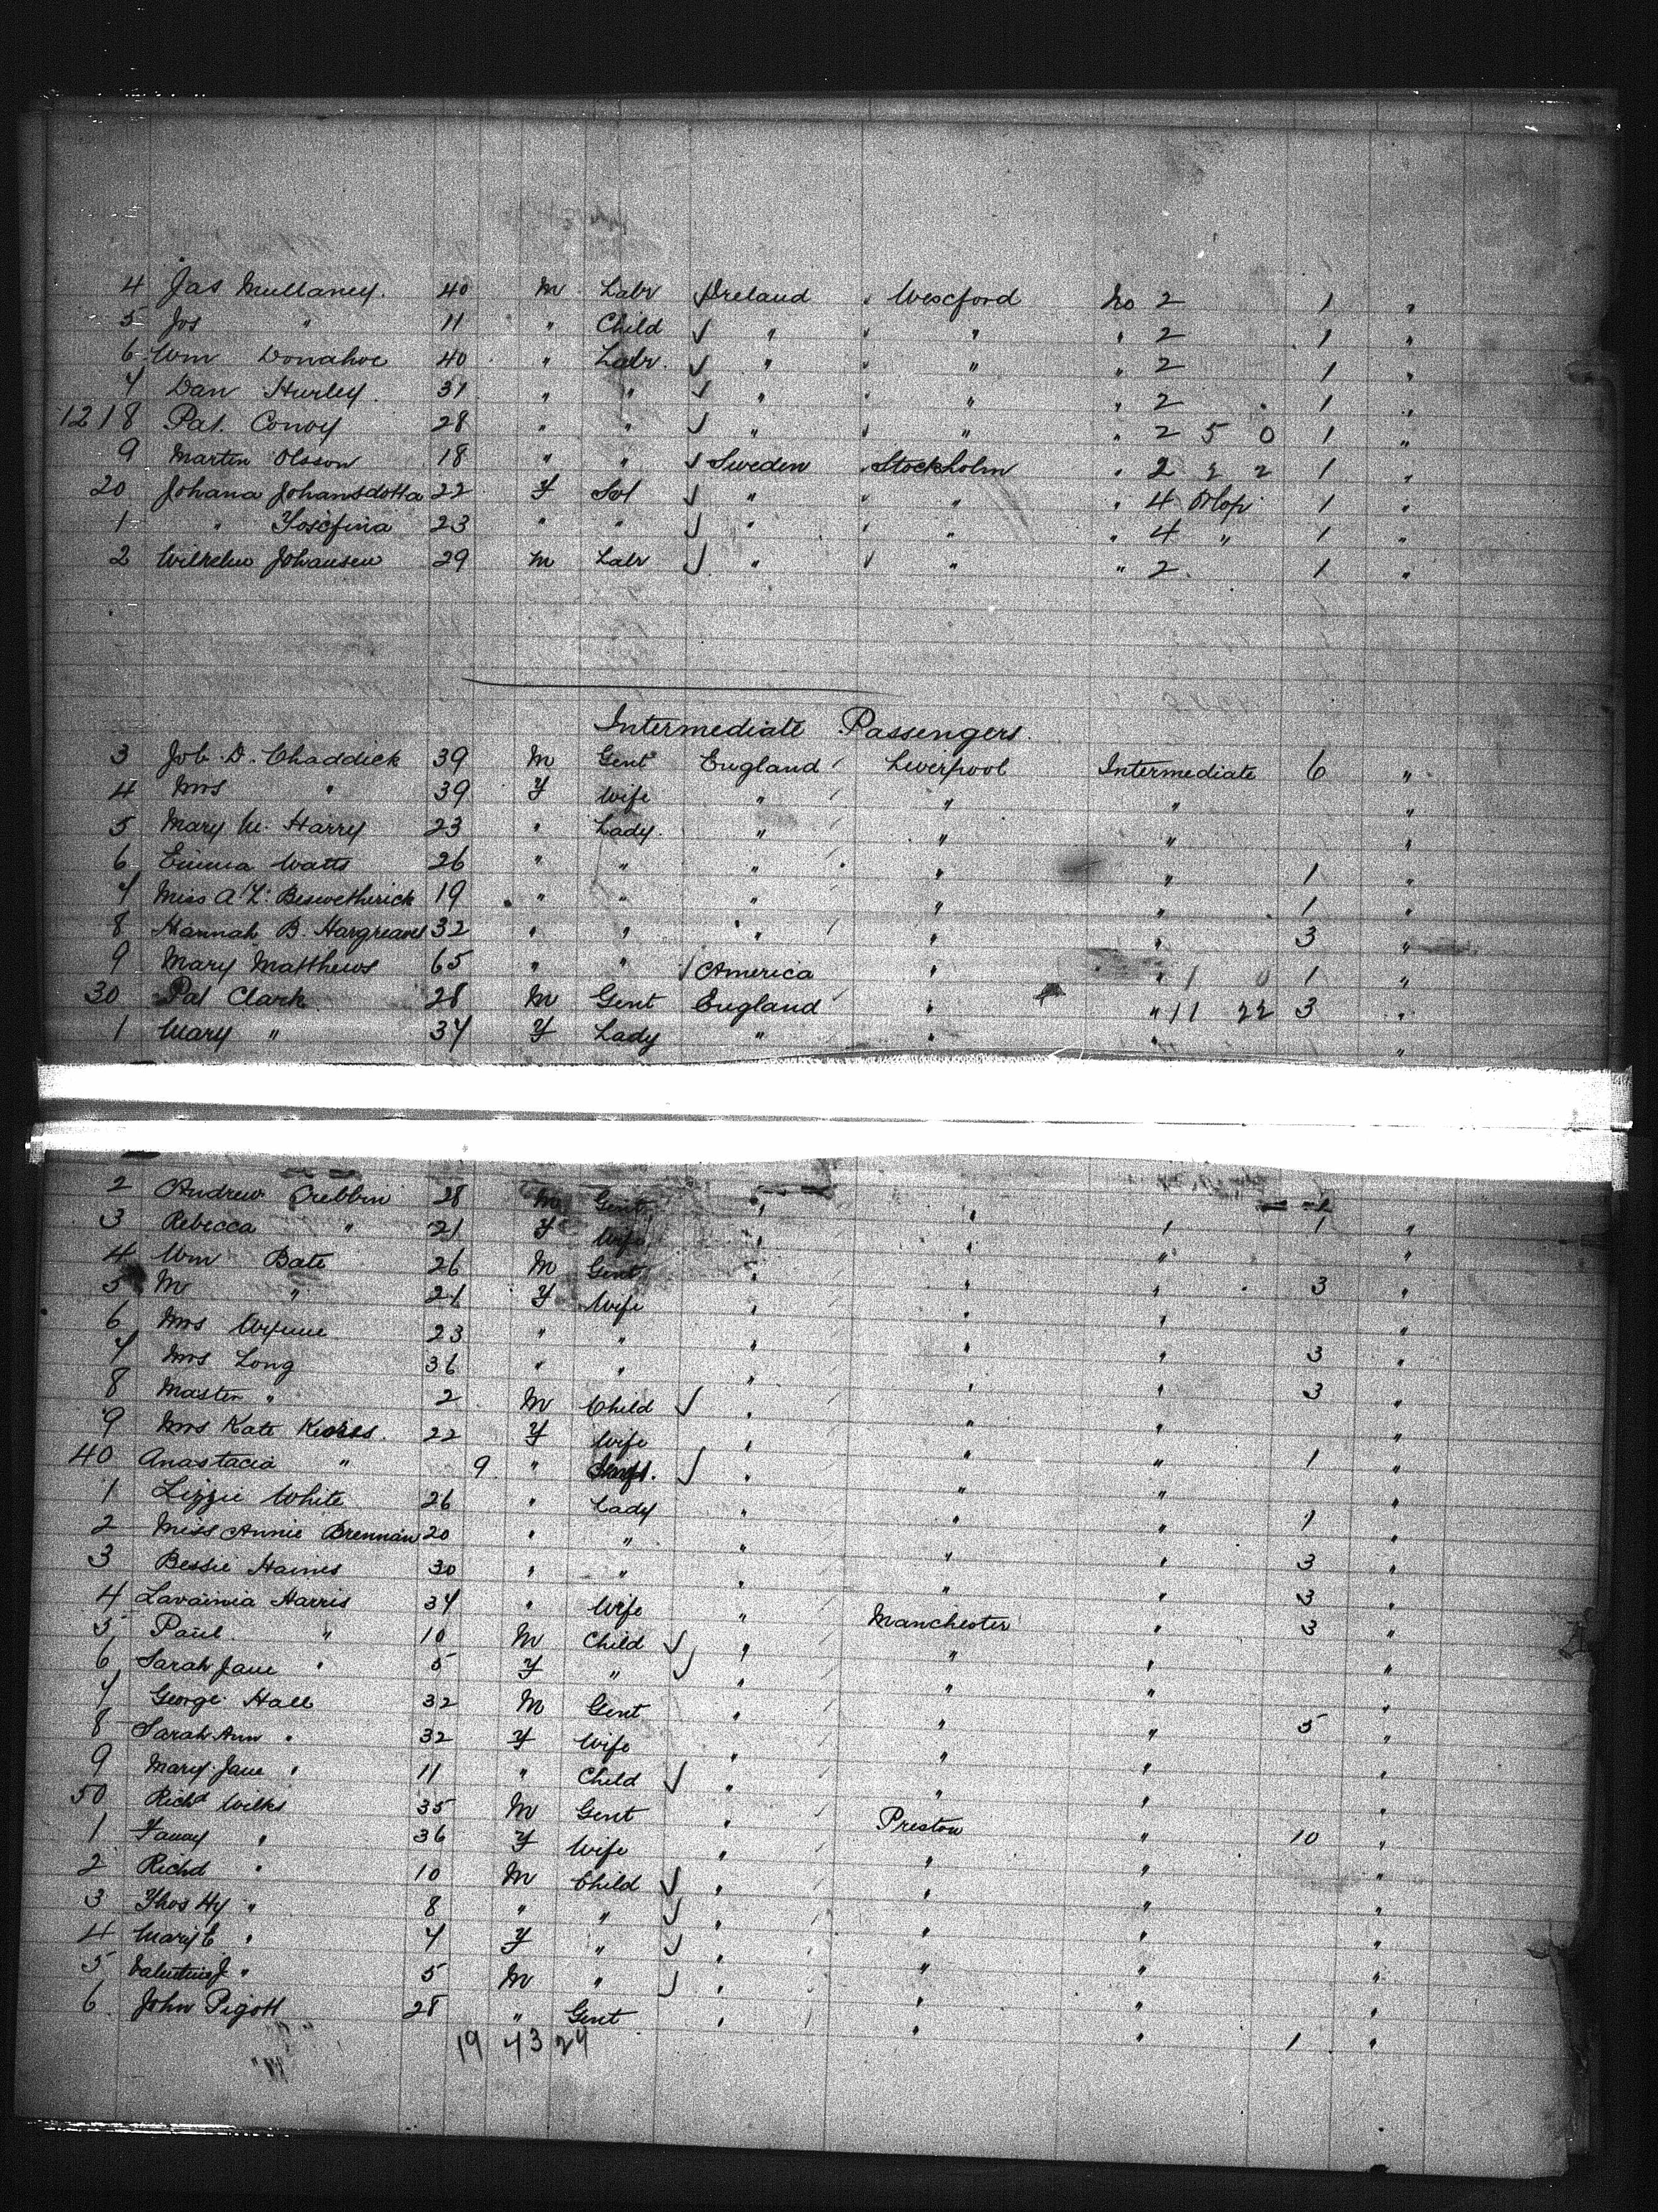 4 Jas Mullaney. 40 M Labr Ireland Wexford No 2 1 "
5 Jos " 11 " Child " " " 2 1 "
6 Wm Donahoe 40 " Labr. " " " 2 1 "
7 Dan Hurley. 31 " " " " " 2 1 "
1218 Pat. Conoy 28 " " " " " 2 5 0 1 "
9 Martin Olsson 18 " " Sweden Stockholm " 2 2 2 1 "
20 Johana Johansdotta 22 F " " " 4 1 "
1 " Josefina 23 " " " " " 4 " 1 "
2 Wilhelm Johansen 29 M Labr " " " 2. 1 "
Intermediate Passengers.
3 Job. D. Chaddick 39 M Gent England Liverpool Intermediate 6 "
4 Mrs " 39 F Wife " " " "
5 Mary W. Harry 23 " Lady. " " " "
6 Emma Watts 26 " " " " " 1 "
7 Miss A. L. Beswetherick 19 " " " " " 1 "
8 Hannah B. Hargreaves 32 " " " " " 3 "
9 Mary Matthews 65 " " America " " 1 0 1 "
30 Pat Clark 28 M Gent England " " 11 22 3 "
1 Mary " 34 F Lady " " " "
2 Andrew 28 M Gent " " "
3 Rebecca " 21 F Wife " " " 1 "
4 Wm Bate 26 M Gent " " " "
5 M " 21 F Wife " " " 3 "
6 Mrs 23 " " " " " "
7 Mrs Long 36 " " " " " 3 "
8 Master " 2 M Child " " " 3 "
9 Mrs Kate 22 F Wife " " " "
40 Anastacia " 9 " " " " 1 "
1 Lizzie White 26 " Lady " " " "
2 Miss Annie Brennan 20 " " " " " 1 "
3 Bessie Haines 30 " " " " " 3 "
4 Lavainia Harris 34 " Wife " Manchester " 3 "
5 Paul " 10 M Child " " " 3 "
6 Sarah Jane " 5 F " " " " "
7 George Hall 32 M Gent " " " 5 "
8 Sarah Ann " 32 F Wife " " " "
9 Mary Jane " 11 " Child " " " "
50 Richd Wilks 35 M Gent " Preston " 10 "
1 Fanny " 36 F Wife " " " "
2 Richd " 10 M Child " " " "
3 Thos Hy " 8 " " " " " "
4 Mary E " 7 F " " " " "
5 Valentine J " 5 M " " " " "
6 John Pigott 28 " Gent " " " 1 "
19 43 24